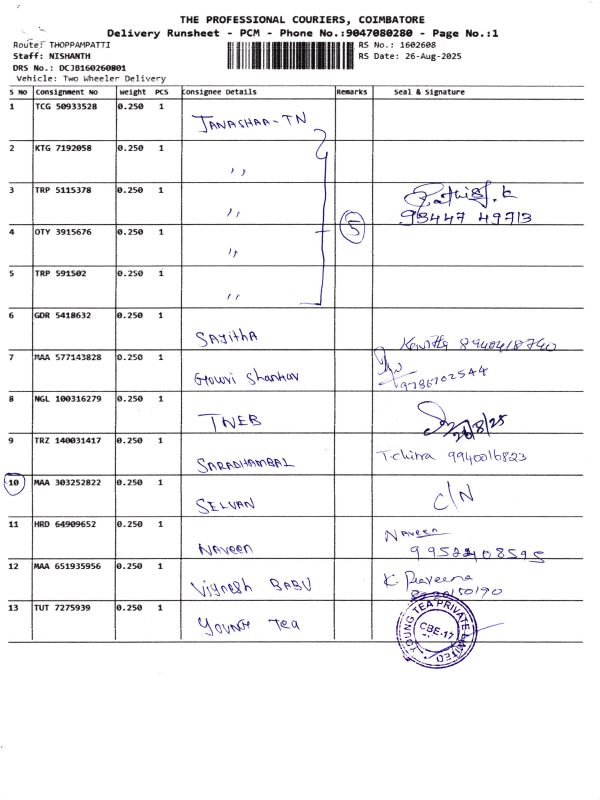 THE PROFESSIONAL COURIERS, COIMBATORE
Delivery Runsheet - PCM - Phone No.:9047080280 - Page No.:1
Route: THOPPAMPATTI
RS No.: 1602608
Staff: NISHANTH
RS Date: 26-Aug-2025
DRS No.: DCJB160260801
Vehicle: Two Wheeler Delivery
S No Consignment No Weight PCS Consignee Details Remarks Seal & Signature
1 TCG 50933528 0.250 1 JANASHAA-TN
2 KTG 7192058 0.250 1 ,,
3 TRP 5115378 0.250 1 ,,
93447 49713
4 OTY 3915676 0.250 1 ,, 5
5 TRP 591502 0.250 1 ,,
6 GDR 5418632 0.250 1 SAJITHA
7 MAA 577143828 0.250 1 Gouri Shankar 9786702544
8 NGL 100316279 0.250 1 TNEB 26/8/25
9 TRZ 140031417 0.250 1 SARADHAMBAL T-chitra 9940016823
10 MAA 303252822 0.250 1 SELVAN C/N
11 HRD 64909652 0.250 1 NAVEEN Naveen
12 MAA 651935956 0.250 1 Vignesh BABU K. Praveena
13 TUT 7275939 0.250 1 YOUNG Tea
YOUNG TEA PRIVATE LIMITED
CBE-17